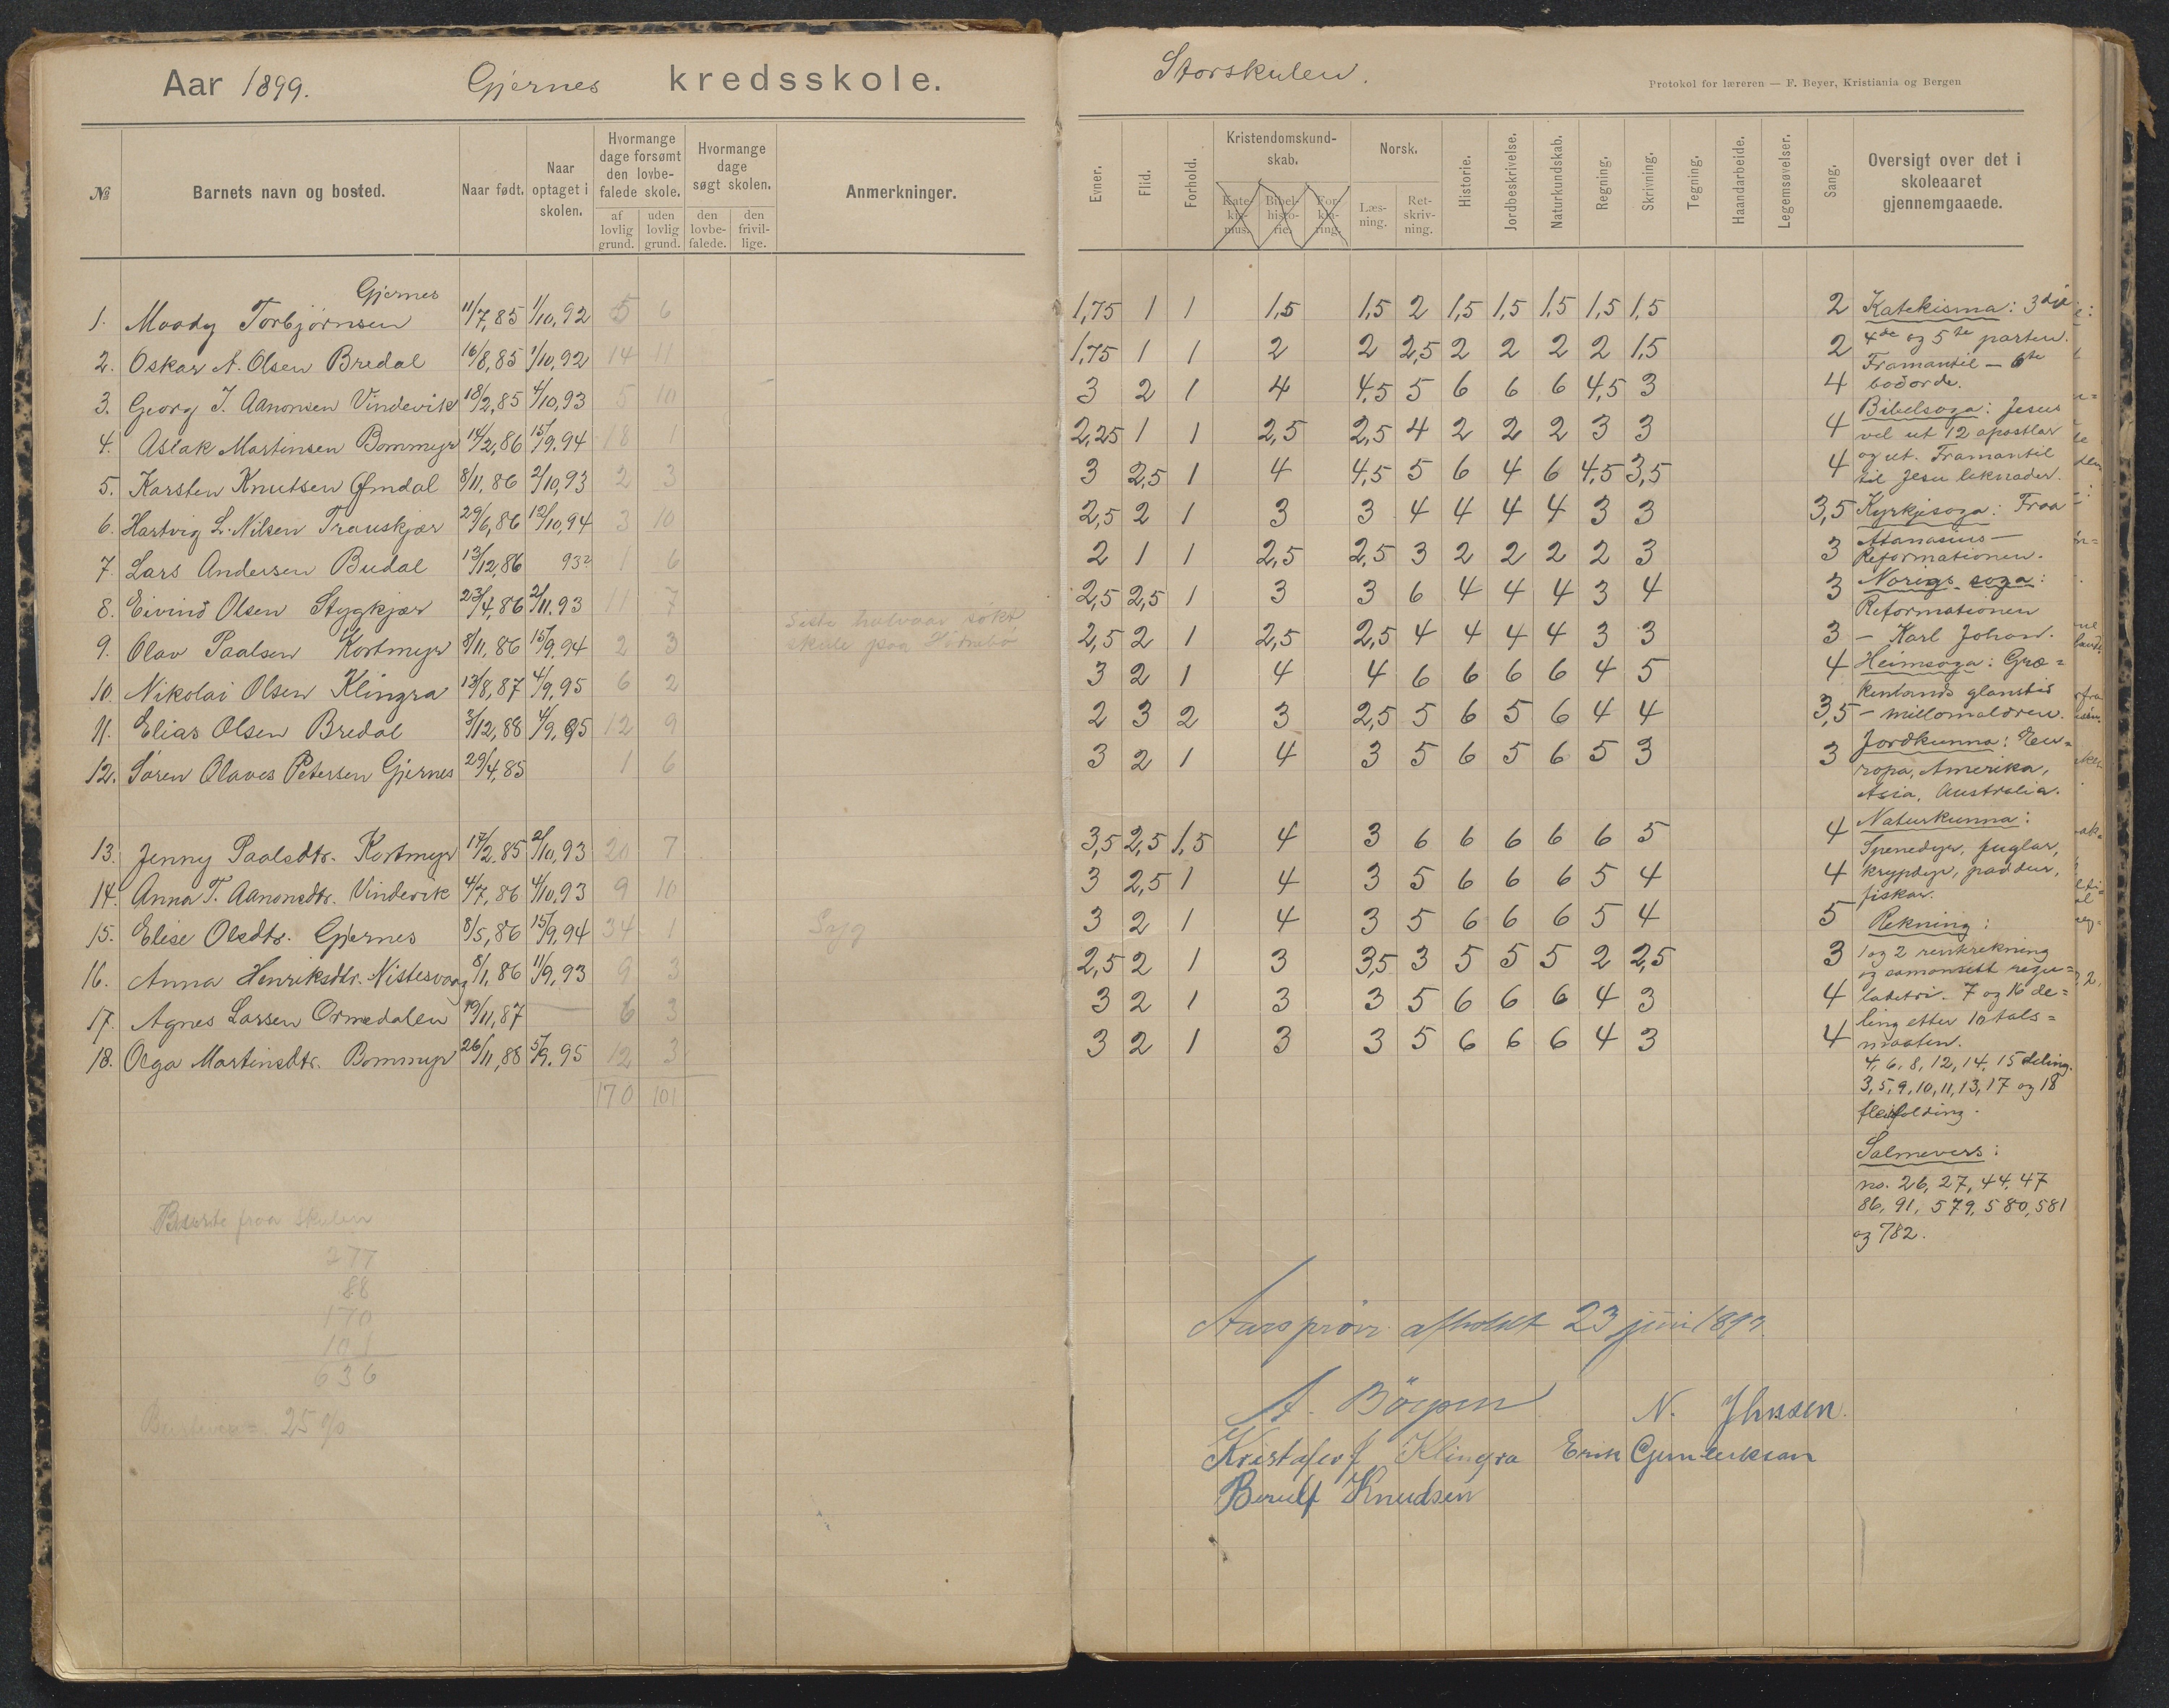 Aar 1899. Gjernes kredsskole.
№ Barnets navn og bosted. Naar født. Naar optaget i skolen. Hvormange dage forsømt den lovbefalede skole. af lovlig grund. uden lovlig grund. Hvormange dage søgt skolen. den lovbefalede. den frivillige. Anmerkninger.
Gjernes
1. Moody Torbjørnsen 11/7,85 1/10,92 5 6
2. Oskar A. Olsen Bredal 16/8,85 1/10,92 14 11
3. Georg T. Aanonsen Vindevik 18/2,85 4/10,93 5 10
4. Aslak Martinsen Bommyr 14/2,86 15/9,94 18 1
5. Karsten Knutsen Ømdal 8/11,86 2/10,93 2 3
6. Hartvig L. Nilsen Trauskjær 29/6,86 12/10,94 3 10
7. Lars Andersen Budal 13/12,86 93? 1 6
8. Eivind Olsen Stygkjær 23/4,86 2/11.93 11 7
9. Olav Paalsen Kortmyr 8/11,86 15/9,94 2 3 Siste halvaar søkt
skule paa
10. Nikolai Olsen Klingra 13/8,87 4/9,95 6 2
11. Elias Olsen Bredal 3/12,88 4/9,95 12 9
12. Søren Olaves Petersen Gjernes 29/4,85 1 6
13. Jenny Paalsdtr. Kortmyr 17/2.85 2/10,93 20 7
14. Anna T. Aanonsdtr. Vindevik 4/7,86 4/10,93 9 10
15. Elise Olsdtr. Gjernes 8/5,86 15/9,94 34 1 Syg
16. Anna Henriksdtr. Nistesvaag 8/1,86 11/9,93 9 3
17. Agnes Larsen Ormedalen 19/11,87 — 6 3
18. Olga Martinsdtr. Bommyr 26/11,88 5/9.95 12 3
170 101
fraa skulen
277
88
170
101
636
25 %
Storskulen.
Protokol for læreren — F. Beyer, Kristiania og Bergen
Evner. Flid. Forhold. Kristendomskundskab. Katekismus. Bibelhistorie. Forklaring. Norsk. Læsning. Retskrivning. Historie. Jordbeskrivelse. Naturkundskab. Regning. Skrivning. Tegning. Haandarbeide. Legemsøvelser. Sang. Oversigt over det i skoleaaret gjennemgaaede.
1,75 1 1 1,5 1,5 2 1,5 1,5 1,5 1,5 1,5 2
1,75 1 1 2 2 2,5 2 2 2 2 1,5 2
3 2 1 4 4,5 5 6 6 6 4,5 3 4
2,25 1 1 2,5 2,5 4 2 2 2 3 3 4
3 2,5 1 4 4,5 5 6 4 6 4,5 3,5 4
2,5 2 1 3 3 4 4 4 4 3 3 3,5
2 1 1 2,5 2,5 3 2 2 2 2 3 3
2,5 2,5 1 3 3 6 4 4 4 3 4 3
2,5 2 1 2,5 2,5 4 4 4 4 3 3 3
3 2 1 4 4 6 6 6 6 4 5 4
2 3 2 3 2,5 5 6 5 6 4 4 3,5
3 2 1 4 3 5 6 5 6 5 3 3
3,5 2,5 1,5 4 3 6 6 6 6 6 5 4
3 2,5 1 4 3 5 6 6 6 5 4 4
3 2 1 4 3 5 6 6 6 5 4 5
2,5 2 1 3 3,5 3 5 5 5 2 2,5 3
3 2 1 3 3 5 6 6 6 4 3 4
3 2 1 3 3 5 6 6 6 4 3 4
Katekisma: 3dje
4de og 5te parten.
Framantil — 6te
bodorde.
Bibelsoga: Jesus
vel ut 12 apostlar
og ut. Framantil
til Jesu liknader.
Kyrkjesoga: Fraa
Atanasius —
Reformationen.
Norigs soga:
Reformationen
— Karl Johan.
Heimsoga: Græ=
kenlands glanstid
— millomaldren.
Jordkunna: Eu=
ropa, Amerika,
Asia, Australia.
Naturkunna:
Spenedyr, fuglar,
krypdyr, paddur,
fiskar.
Rekning:
1 og 2 renterekning
og samansett regu=
ladetri. 7 og 16 de=
ling etter 10 tals=
maaten.
4, 6, 8, 12, 14, 15 deling.
3, 5, 9, 10, 11, 13, 17 og 18
fleirfolding.
Salmevers:
no. 26, 27, 44, 47
86, 91, 579, 580, 581
og 782.
Aarsprøve afholdt 23 juni 1899.
A. N. Jhnssen.
Kristofer J Klingra Erik Gundersen
Berulf Knudsen